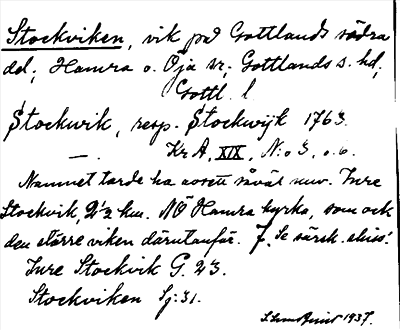 Stockviken, vik på Gottlands södra
del; Hamra o. Öja sr; Gottlands s. hd,
Gottl. l.
Stockwik, resp. Stockwijk 1763.
— . Kr A, XIX, N:o 3, o.
Namnet torde ha avsett såväl nuv. Inre
Stockvik, 2½ km. NÖ Hamra kyrka, som ock
den större viken därutanför. Jf. Se särsk. skiss!
Inre Stockvik G. 23.
Stockviken Sj: 31.
1937.